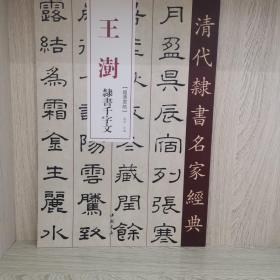 清代隸書名家經典
王澍
隸書千字文
月盈昃辰宿列張寒
冬藏閏餘
陽雲騰致
露結爲霜金生麗水